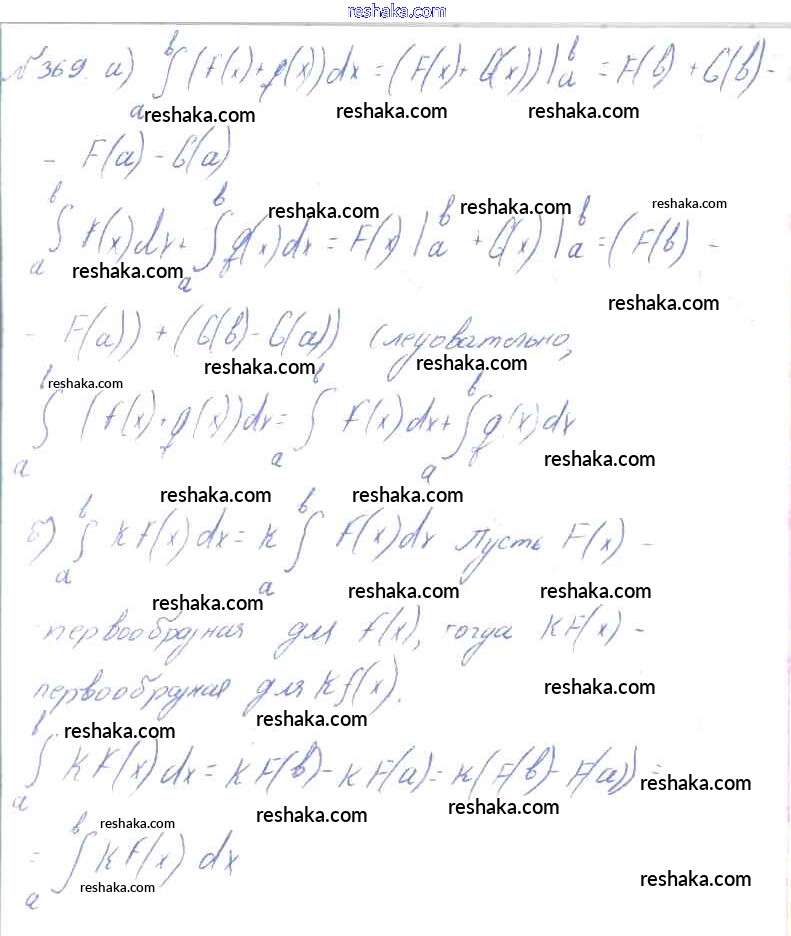 reshaka.com
№369. а) ∫ₐᵇ (f(x) + g(x)) dx = (F(x) + G(x)) |ₐᵇ = F(b) + G(b) -
reshaka.com reshaka.com reshaka.com
- F(a) - G(a)
reshaka.com reshaka.com reshaka.com
∫ₐᵇ f(x) dx + ∫ₐᵇ g(x) dx = F(x) |ₐᵇ + G(x) |ₐᵇ = (F(b) -
reshaka.com reshaka.com
- F(a)) + (G(b) - G(a)) Следовательно,
reshaka.com reshaka.com reshaka.com
∫ₐᵇ (f(x) + g(x)) dx = ∫ₐᵇ f(x) dx + ∫ₐᵇ g(x) dx
reshaka.com
reshaka.com reshaka.com
б) ∫ₐᵇ k f(x) dx = k ∫ₐᵇ f(x) dx Пусть F(x) -
reshaka.com reshaka.com reshaka.com
первообразная для f(x), тогда kF(x) -
первообразная для kf(x).
reshaka.com
reshaka.com reshaka.com
∫ₐᵇ k f(x) dx = kF(b) - kF(a) = k(F(b) - F(a)) =
reshaka.com
reshaka.com reshaka.com
reshaka.com
= ∫ₐᵇ k f(x) dx
reshaka.com reshaka.com